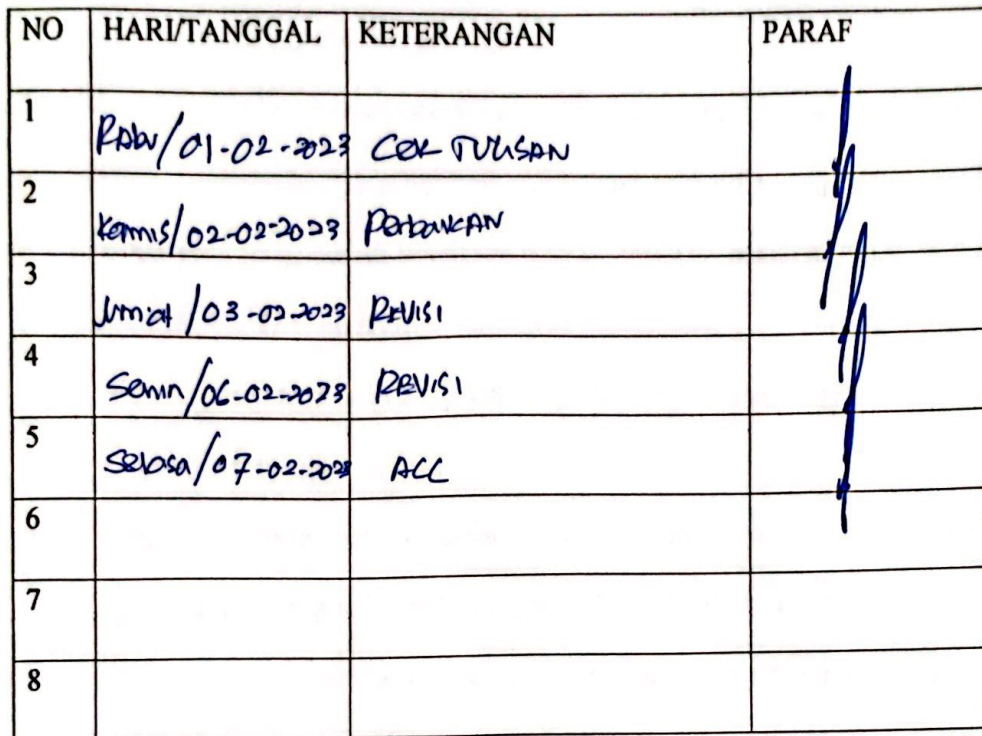 NO HARI/TANGGAL KETERANGAN PARAF
1 Rabu/01-02-2023 CEK TULISAN
2 Kamis/02-02-2023 Perbaikan
3 Jum'at/03-02-2023 REVISI
4 Senin/06-02-2023 REVISI
5 Selasa/07-02-2023 ACC
6
7
8